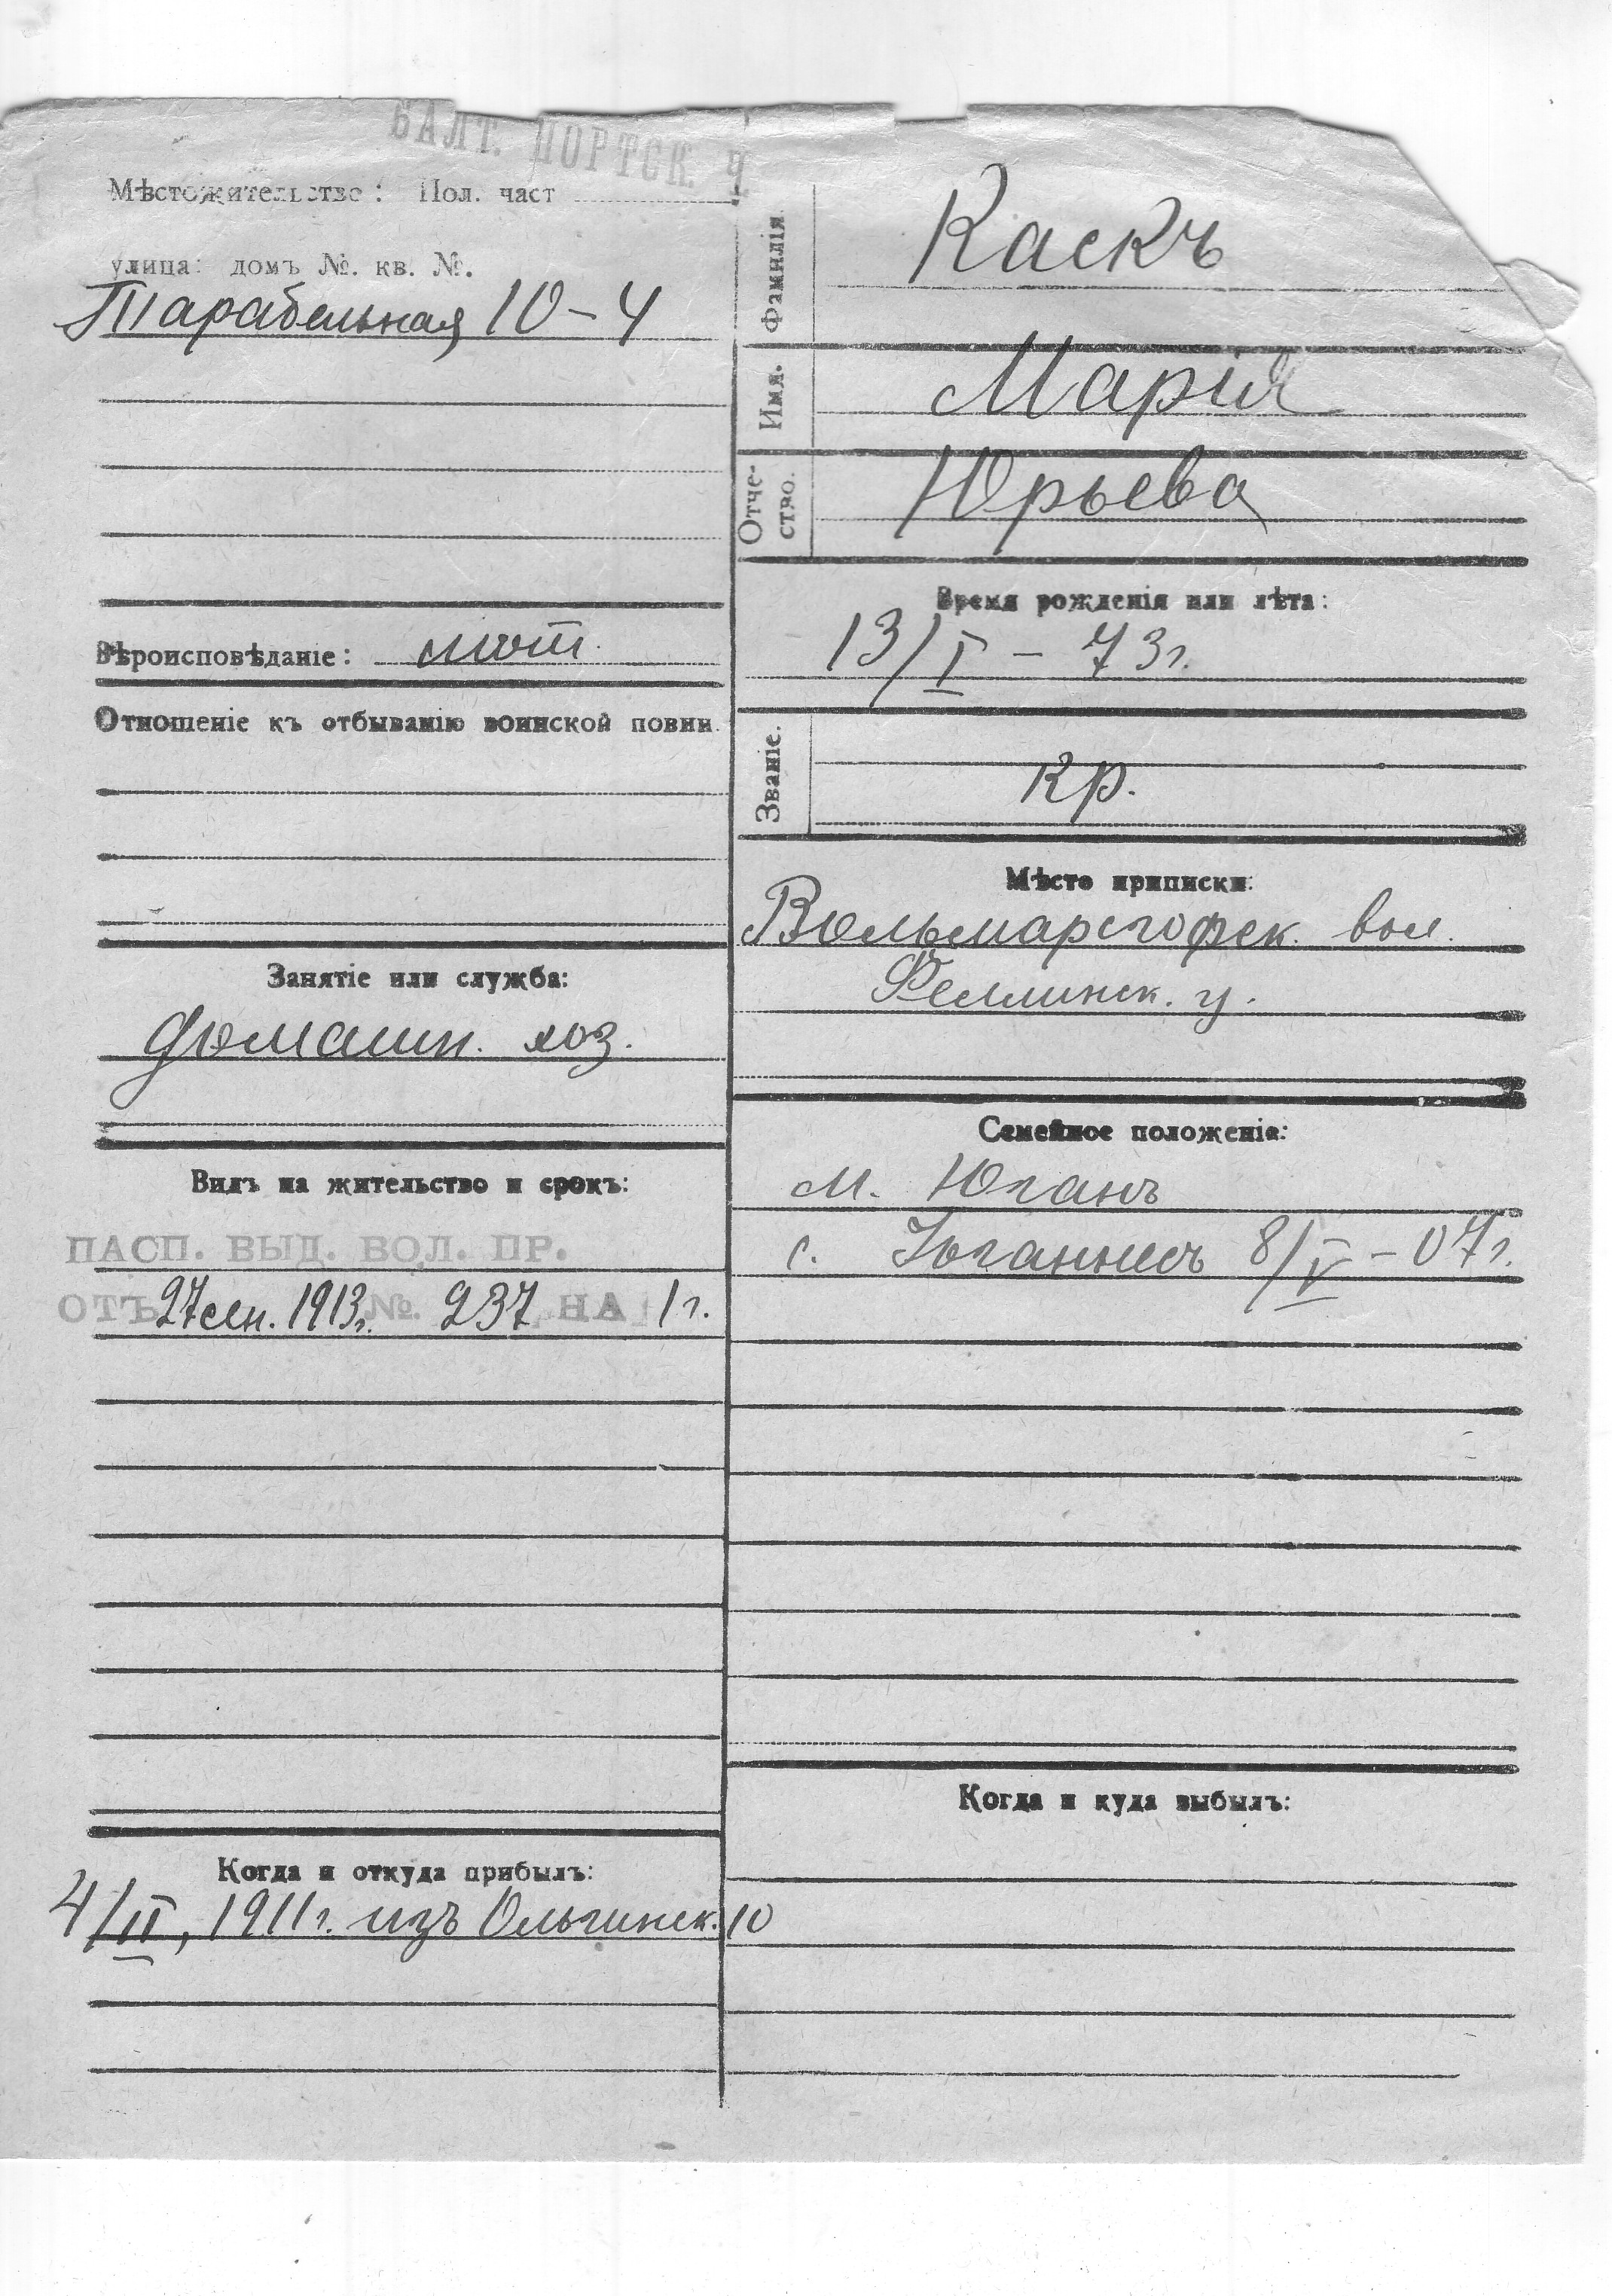 БАЛТ. ПОРТСК. Ч.
Мѣстожительство: Пол. част
улица: домъ №. кв. №.
Тарабельная 10-4
Вѣроисповѣданіе: лют.
Отношеніе къ отбыванію воинской повин.
Занятіе или служба:
домашн. хоз.
Видъ на жительство и срокъ:
ПАСП. ВЫД. ВОЛ. ПР.
ОТЪ 27 сен. 1913г. №. 237 НА 1 г.
Когда и откуда прибылъ:
4/II, 1911г. изъ Ольгинск. 10
Фамилія
Каскъ
Имя.
Марія
Отче-
ство.
Юрьева
Время рожденія или лѣта:
13/I - 73г.
Званіе.
кр.
Мѣсто приписки:
Вольмарсгофск. вол.
Феллинск. у.
Семейное положеніе:
м. Юганъ
с. Іоганнесъ 8/V - 07г.
Когда и куда выбылъ: